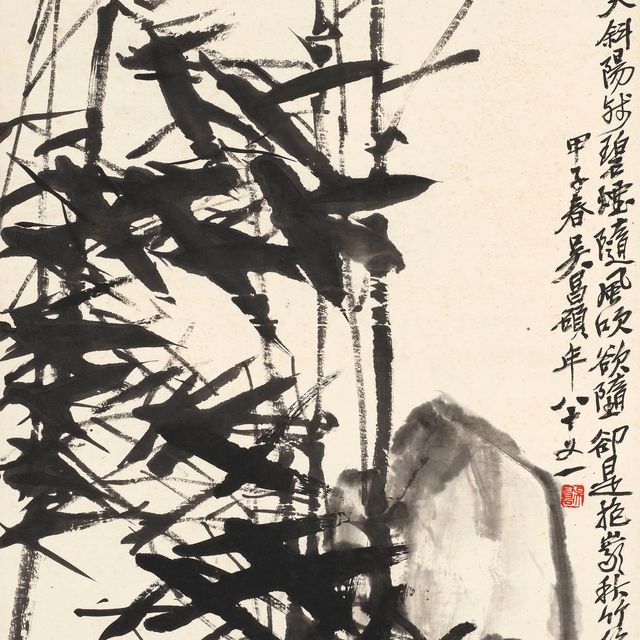 斜陽碧隨風吹欲隨卻是秋竹
甲子春吳昌碩年八十又一